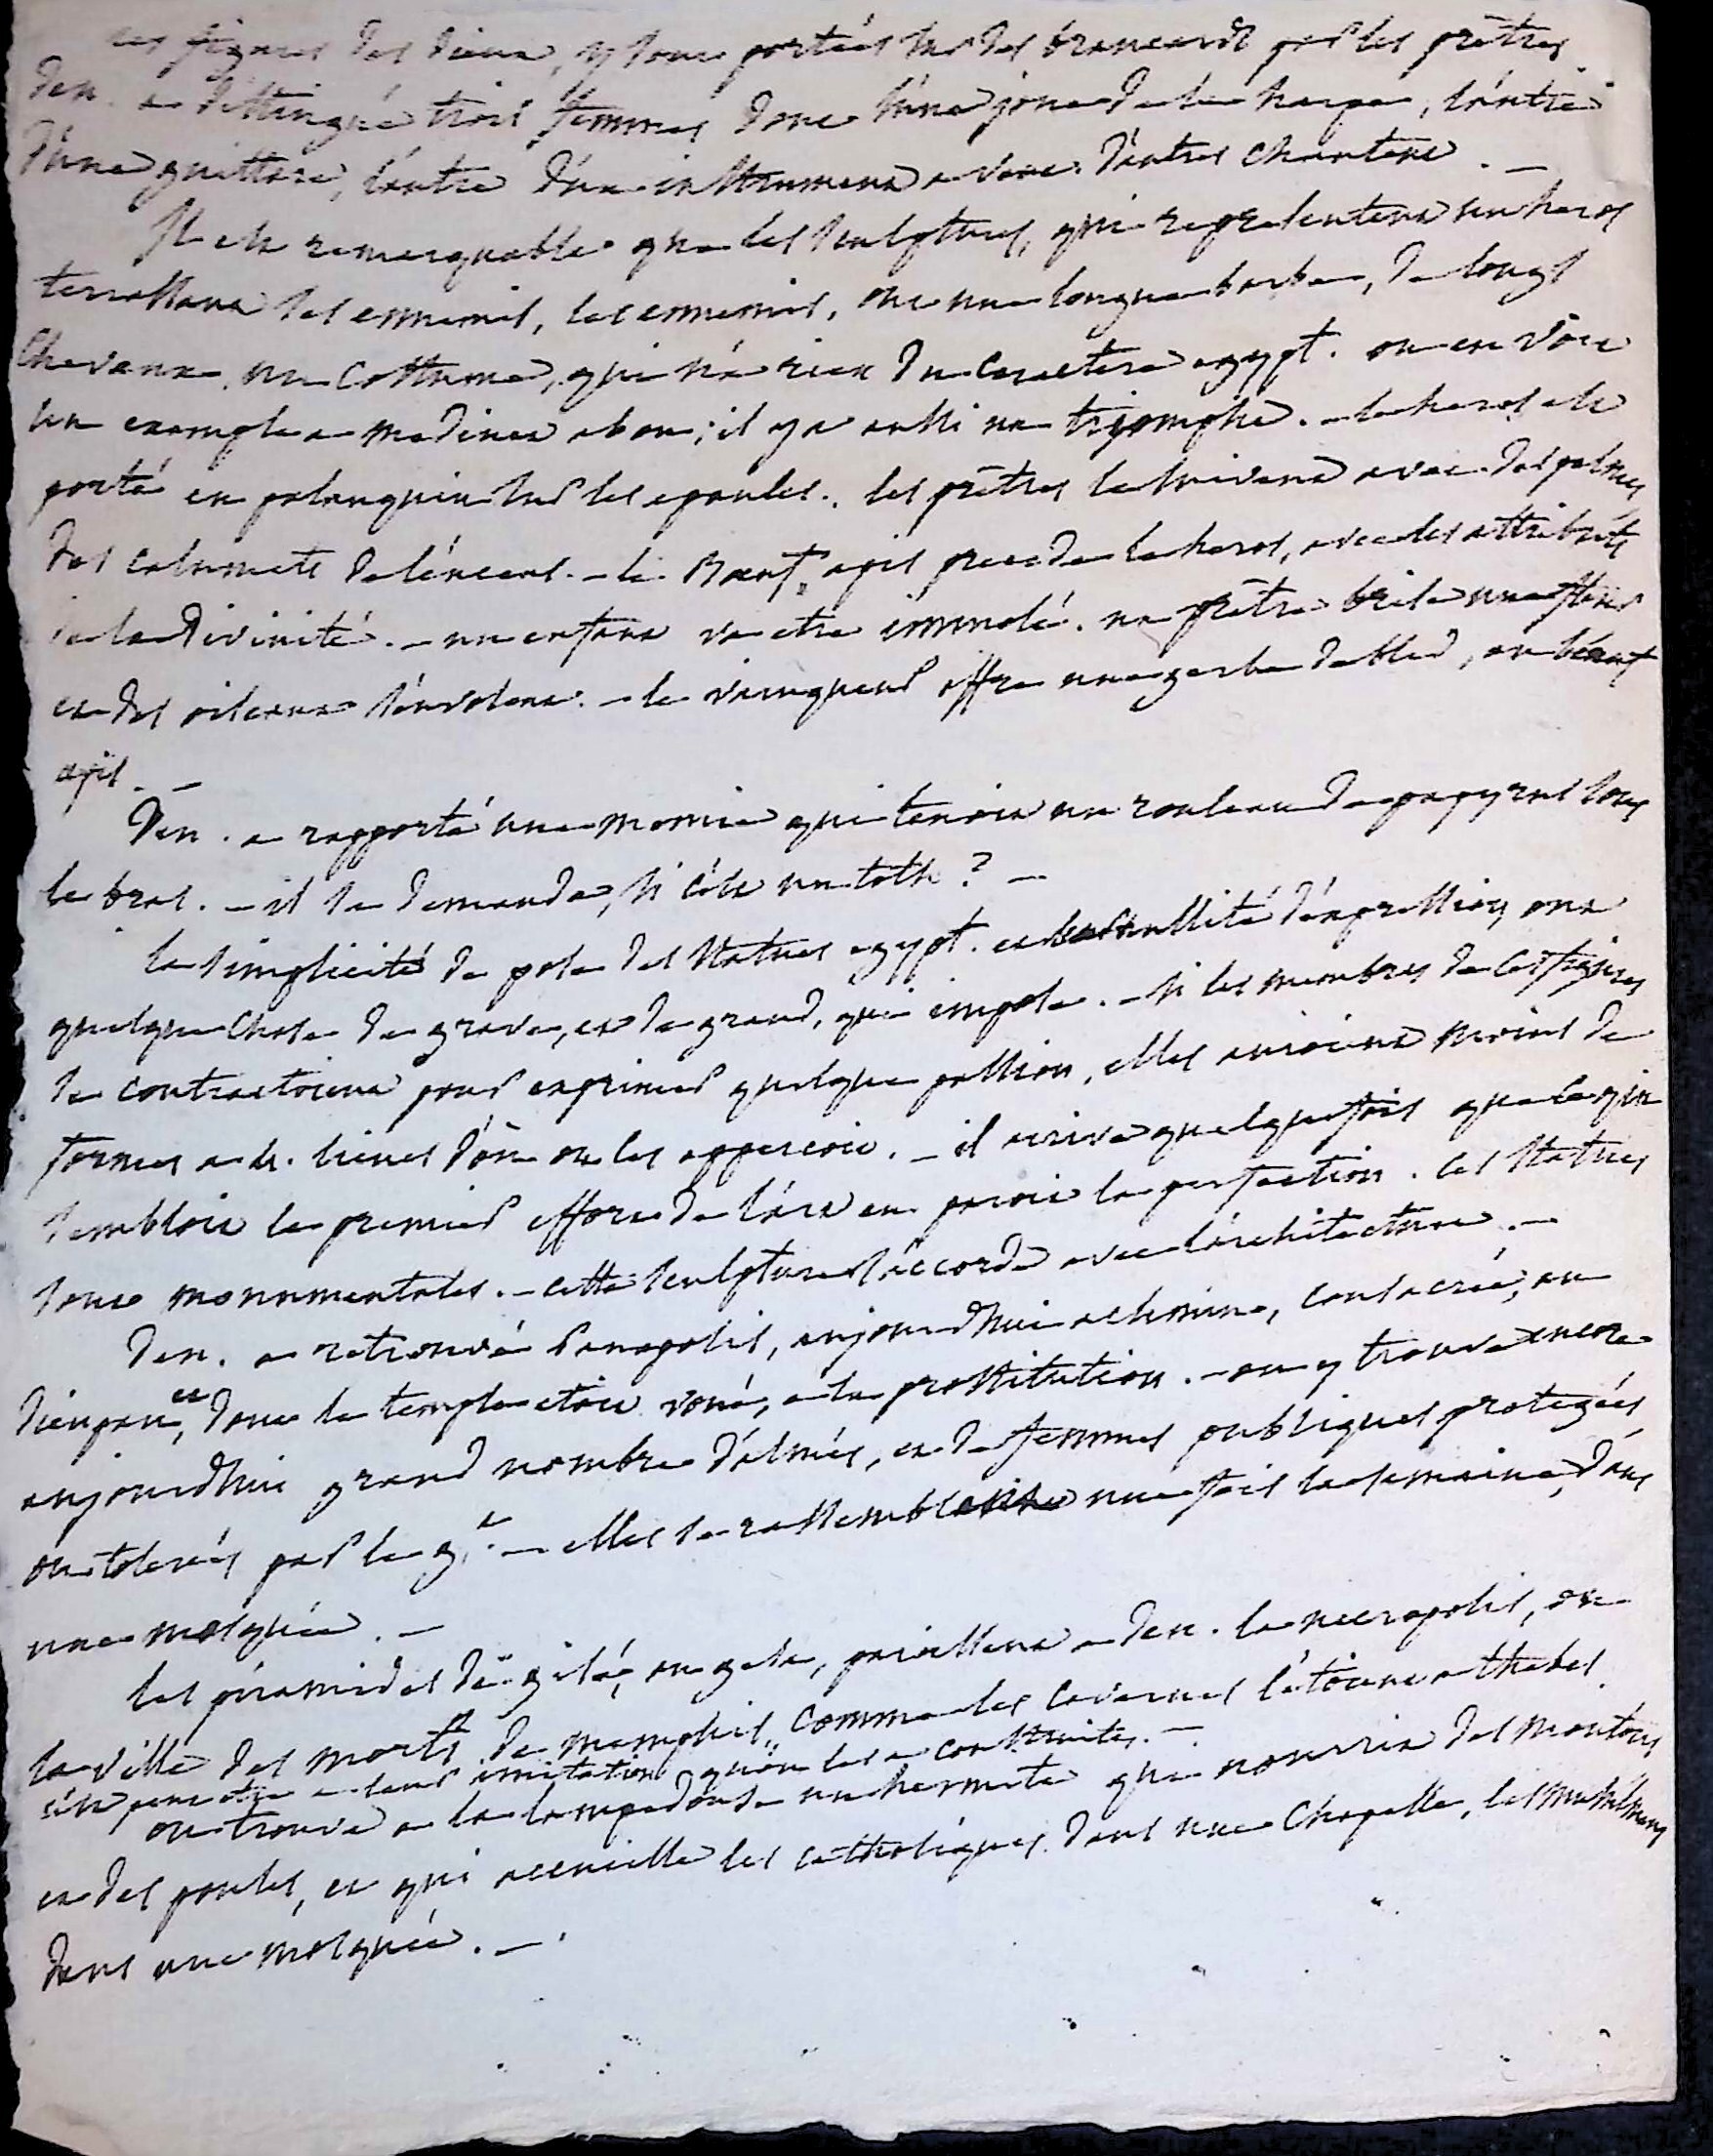 les figures des dieux, y sont portées sur des brancards par les prêtres
Den. a distingué trois femmes dont l'une joue de la harpe, l'autre
d'une guittare, l'autre d'un instrument a vent. d'autres chantent. —
Il est remarquable que les sculptures, qui representent un heros
terrassant ses ennemis, les ennemis, ont une longue barbe, de longs
cheveux, un costume, qui n'a rien du caractere egypt. on en voit
un exemple a medinet abou; il y a aussi un triomphe. — le heros est
porté en palanquin sur les epaules. les prêtres le suivent avec des palmes
des calumets de l'encens. — le Bœuf apis precede le heros, avec les attributs
de la divinité. — un enfant va etre immolé. un prêtre brise une fleur
et des oiseaux s'envolent. — le vainqueur offre une gerbe de bled, au bœuf
apis. —
Den. a rapporté une momie qui tenoit un rouleau de papyrus sous
le bras. — il se demande, si c'est un toth? —
la simplicité de pose des statues egypt. et la nullité d'expression ont
quelque chose de grave, et de grand, qui impose. — si les membres de ces figures
se contractoient pour exprimer quelque passion, elles auroient moins de
formes a dist. lieues d'où on les apperçoit. — il arrive quelquefois que ce qui
sembloit le premier effort de l'art en paroit la perfection. ces statues
sont monumentales. — cette sculpture s'accorde avec l'architecture. —
Den. a retrouvé Panapolis, aujourd'hui achmine, consacrée, au
dieu pan, et dont le temple etoit voué, a la prostitution. — on y trouve encore
aujourdhui grand nombre d'almés, et de femmes publiques protegées
ou tolerées par le g.t — elles se rassemblent une fois la semaine, dans
une mosquée. —
les piramides de gisé, ou gese, paroissent a Den. la necropolis, ou
la ville des morts de memphis, comme les cavernes l'étoient a thebes.
c'est peut etre a leur imitation qu'on les a construites. —
on trouve a la lampedouse un hermite qui nourrit des moutons
et des poules, et qui accueille les catholiques dans une chapelle, les musulmans
dans une mosquée. —